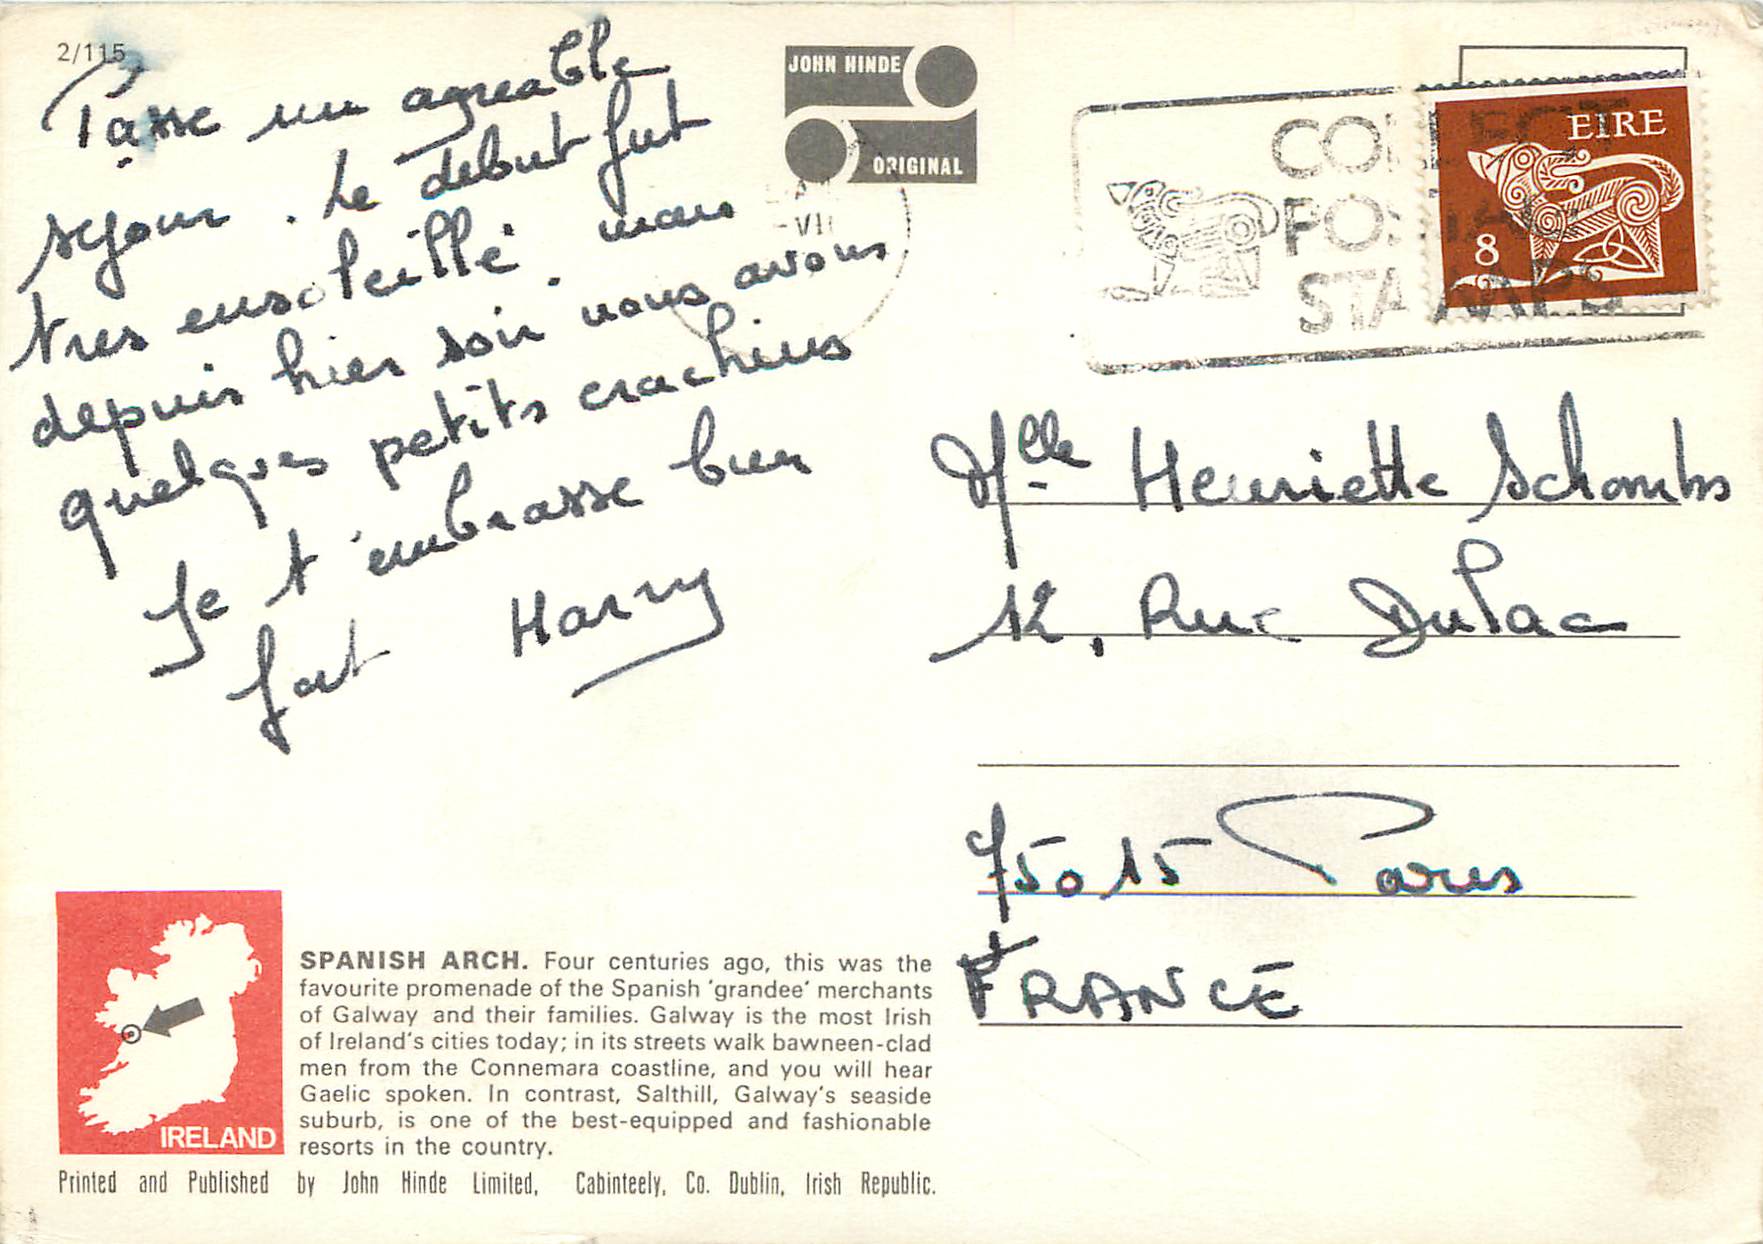 2/115
Passe un agreable
sejour. Le debut fut
tres ensoleillé. mais
depuis hier soir nous avons
quelques petits crachins
Je t'embrasse bien
fort Harry
JOHN HINDE
ORIGINAL
VII
COLLECT
POSTAGE
STAMPS
EIRE
8
Mlle Henriette Schombs
12, Rue Dulac
75015 Paris
FRANCE
IRELAND
SPANISH ARCH. Four centuries ago, this was the
favourite promenade of the Spanish 'grandee' merchants
of Galway and their families. Galway is the most Irish
of Ireland's cities today; in its streets walk bawneen-clad
men from the Connemara coastline, and you will hear
Gaelic spoken. In contrast, Salthill, Galway's seaside
suburb, is one of the best-equipped and fashionable
resorts in the country.
Printed and Published by John Hinde Limited, Cabinteely, Co. Dublin, Irish Republic.